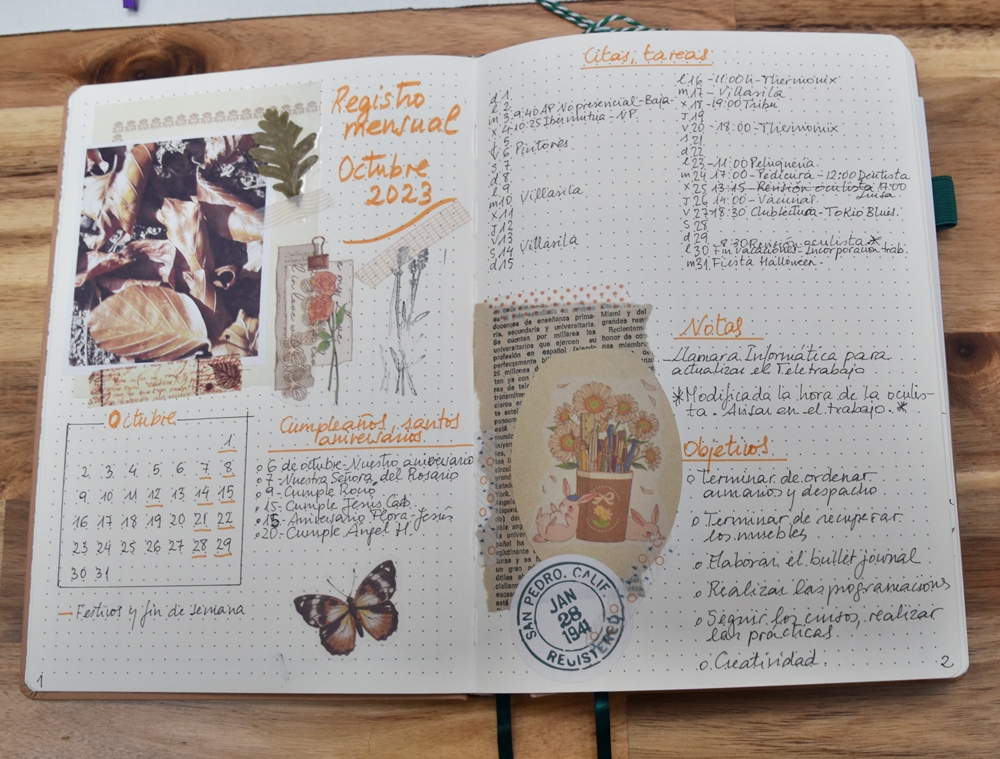 Registro
mensual
Octubre
2023
Octubre
1
2 3 4 5 6 7 8
9 10 11 12 13 14 15
16 17 18 19 20 21 22
23 24 25 26 27 28 29
30 31
Festivos y fin de semana
1
Cumpleaños, santos
aniversarios.
6 de octubre-Nuestro aniversario
7- Nuestra Señora del Rosario
9- Cumple Rocío
15- Cumple Jesús
Aniversario Flora-Jesús
20- Cumple Angel H.
Citas, tareas
d 1
l 2
m 3 9:40 AP No presencial-Baja-
x 4-10:25 Ibermutua - VP.
j 5
v 6 Pintores
s 7
d 8
l 9
m10 Villasila
x 11
J 12
v 13 Villasila
s 14
d 15
l 16 - 11:00h - Thermomix
m 17 - Villasila
x 18 - 19:00 Tribu
J 19
v 20 - 18:00 - Thermomix
s 21
d 22
l 23 - 11:00 Peluquería
m 24 17:00 - Pedicura - 12:00 Dentista
x 25 13:15 Revisión oculista 17:00
Luisa
J 26 14:00 - Vacunas
v 27 18:30 Club lectura - Tokio Blues.
S 28
d 29
l 30 8:30 Revisión oculista *
Fin vacaciones - Incorporación trab.
m 31 Fiesta Halloween -
docentes de enseñanza prima-
ria, secundaria y universitaria.
Se cuentan por millares los
universitarios que ejercen su
profesión en español
perfectamente
Miami y del
grandes
honor de
SAN PEDRO, CALIF.
JAN
28
1941
REGISTERED
Notas
Llamar a Informática para
actualizar el Teletrabajo
*Modificada la hora de la oculis-
ta. Avisar en el trabajo. *
Objetivos
Terminar de ordenar
armarios y despacho
Terminar de recuperar
los muebles
Elaborar el bullet journal
Realizar las programaciones
Seguir los cursos, realizar
las prácticas.
Creatividad.
2